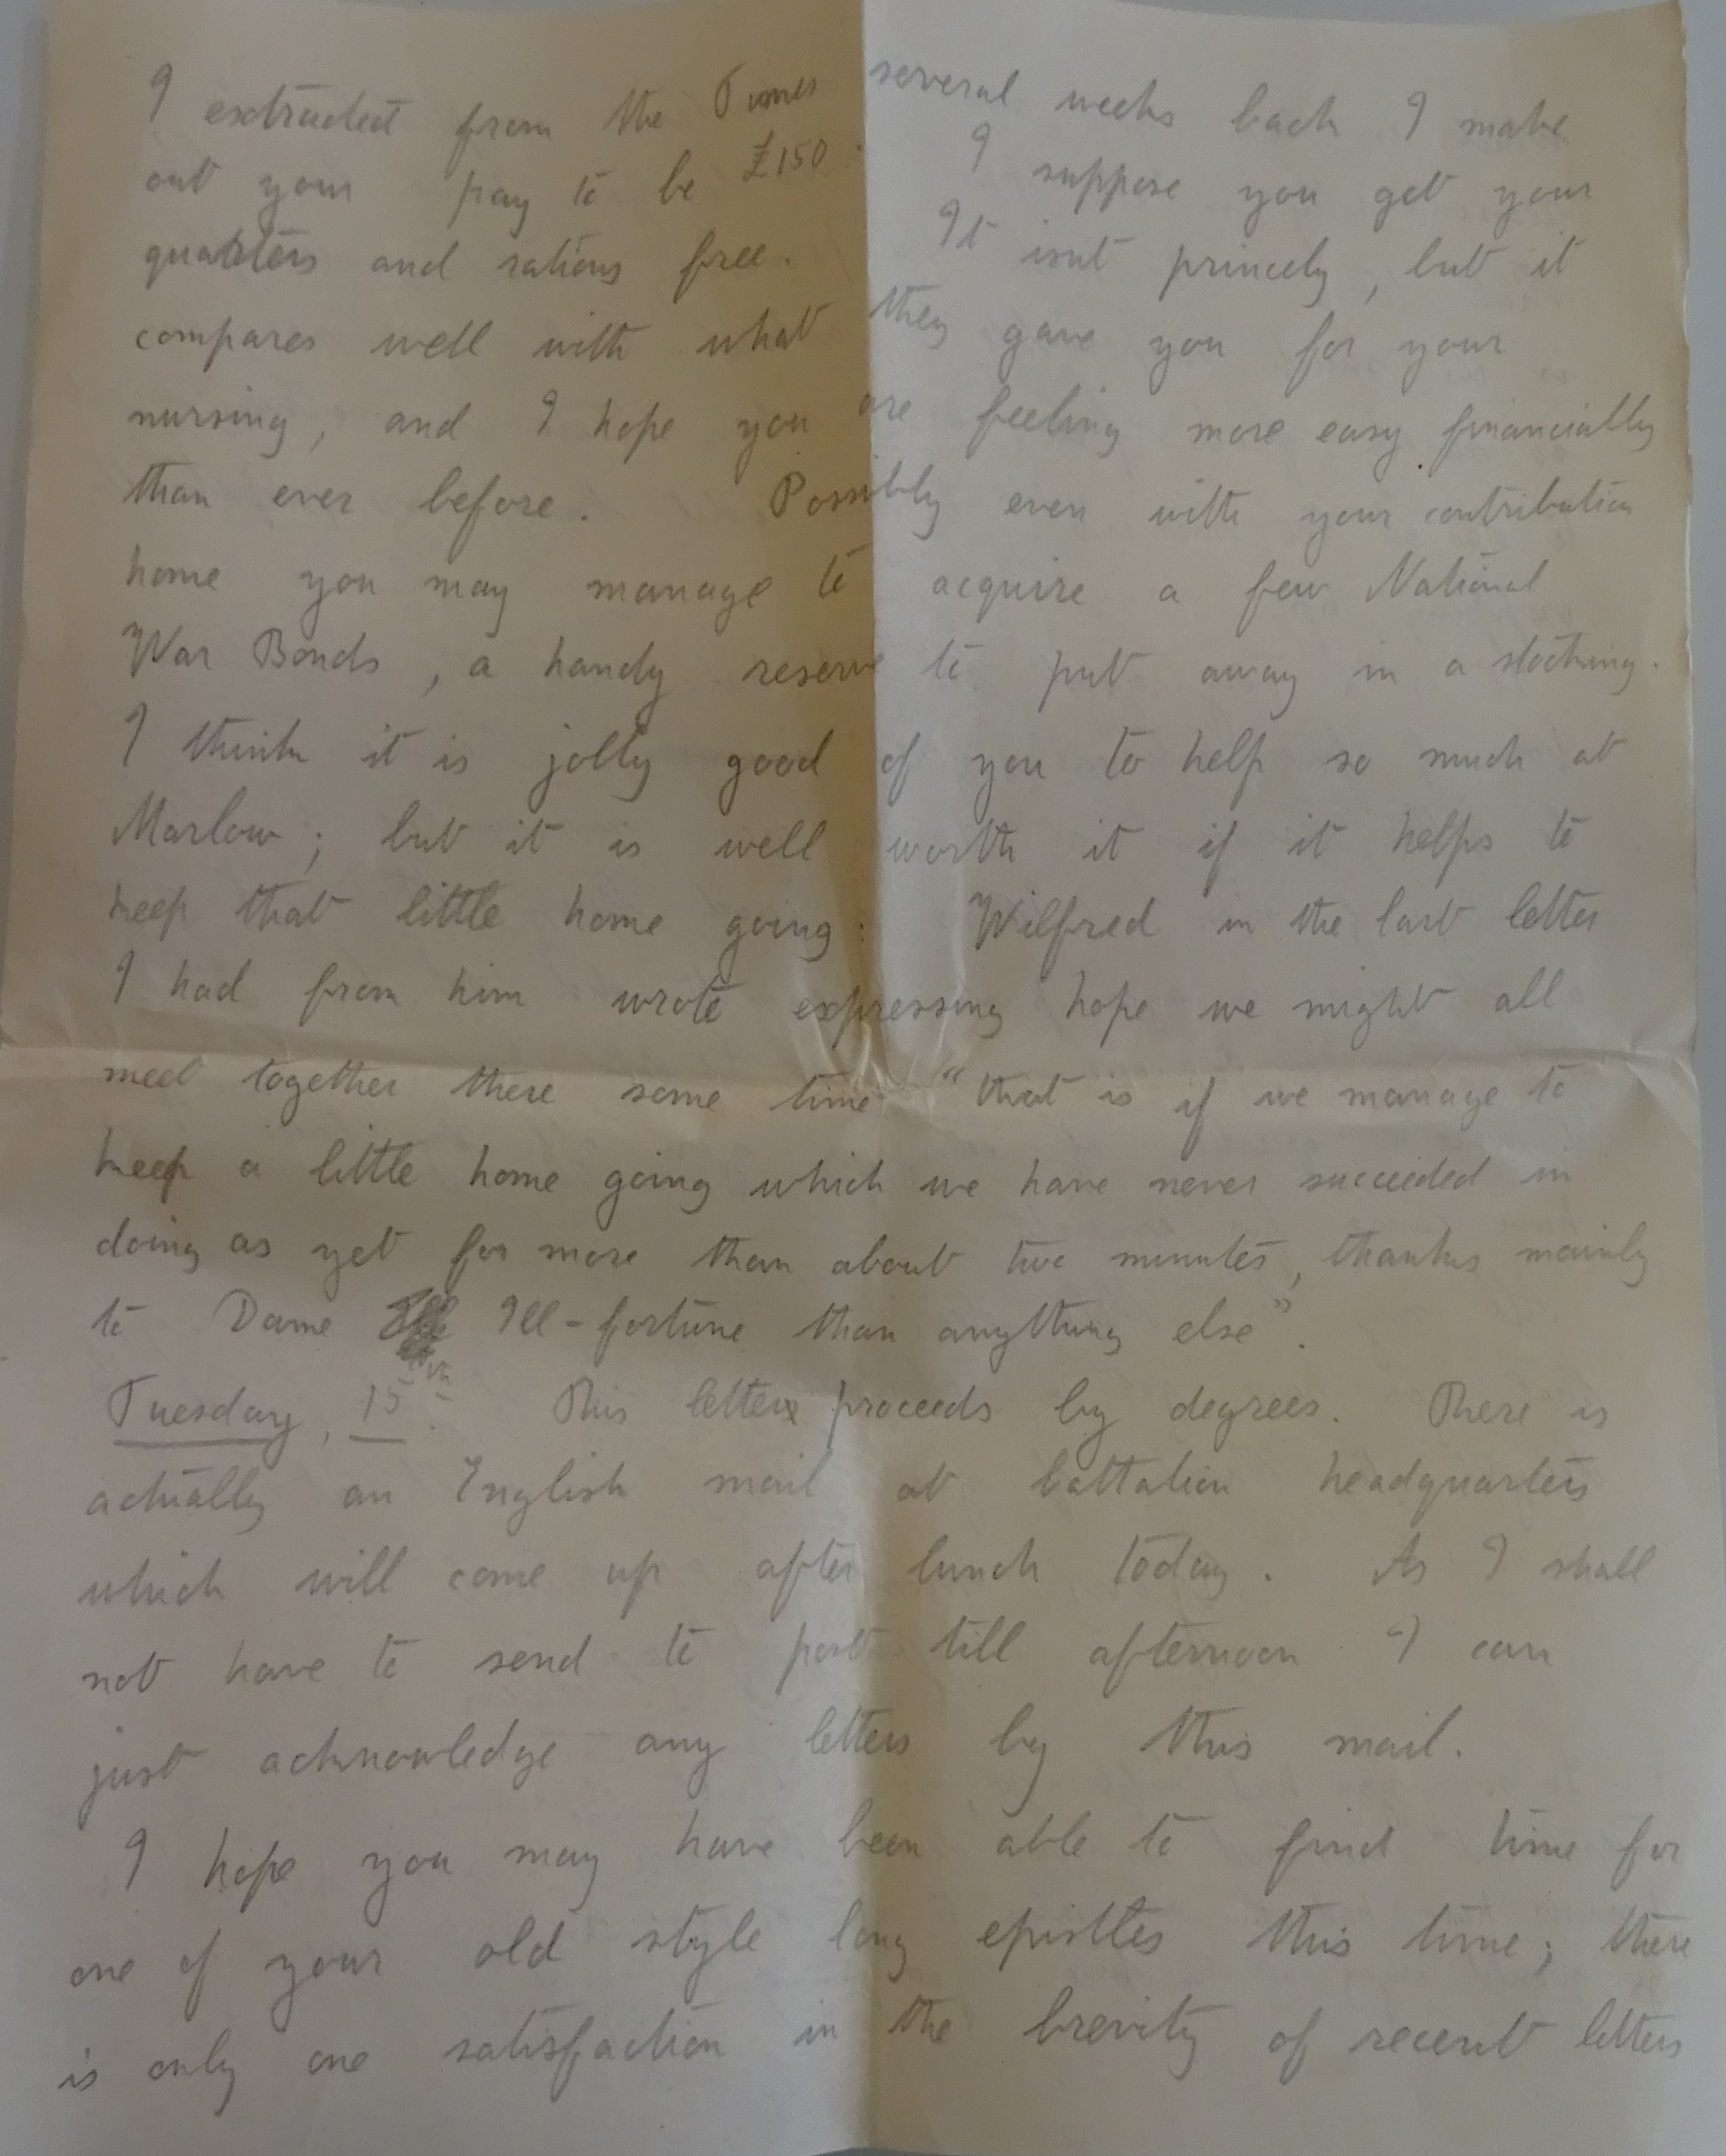 I extracted from the Times several weeks back I make
out your pay to be £150. I suppose you get your
quarters and rations free. It isnt princely, but it
compares well with what they gave you for your
nursing, and I hope you are feeling more easy financially
than ever before. Possibly even with your contribution
home you may manage to acquire a few National
War Bonds, a handy reserve to put away in a stocking.
I think it is jolly good of you to help so much at
Marlow; but it is well worth it if it helps to
keep that little home going: Wilfred in the last letter
I had from him wrote expressing hope we might all
meet together there some time "that is if we manage to
keep a little home going which we have never succeeded in
doing as yet for more than about two minutes, thanks mainly
to Dame Ill-fortune than anything else".
Tuesday, 15th. This letter proceeds by degrees. There is
actually an English mail at battalion headquarters
which will come up after lunch today. As I shall
not have to send to post till afternoon I can
just acknowledge any letters by this mail.
I hope you may have been able to find time for
one of your old style long epistles this time; there
is only one satisfaction in the brevity of recent letters